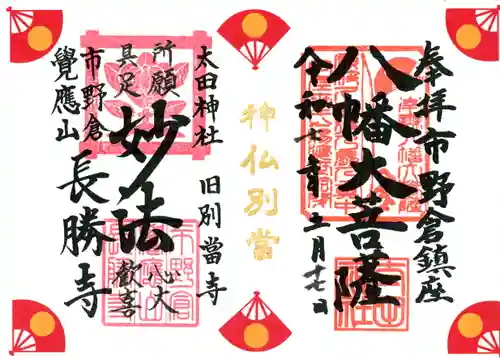 奉拝市野倉鎮座
八幡大菩薩
令和七年十一月十七日
神仏別當
太田神社
旧別當寺
所願
具足
妙法
心大
歓喜
市野倉
覺應山
長勝寺